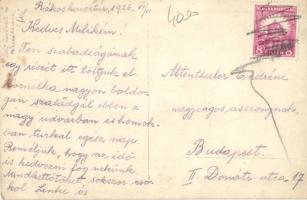 Rákoskeresztúr, 1926. VI/11
Kedves Milikém!
Teri szabadságának
egy részét itt töltjük el
Kornélka nagyon boldo-
gan szaladgál ebben a
nagy udvarban és homok-
ban turkál egész nap.
Reméljük, hogy az idő
is kedvezni fog nekünk.
Mindkettőtöket sokszor csó-
kol Linke és
400
8
Altenthaler Endréné
nagyságos asszonynak
Budapest.
II. Donáti utca 17